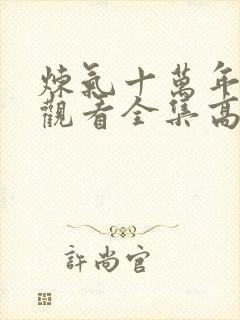 煉氣十萬年
觀看全集高
許尚官